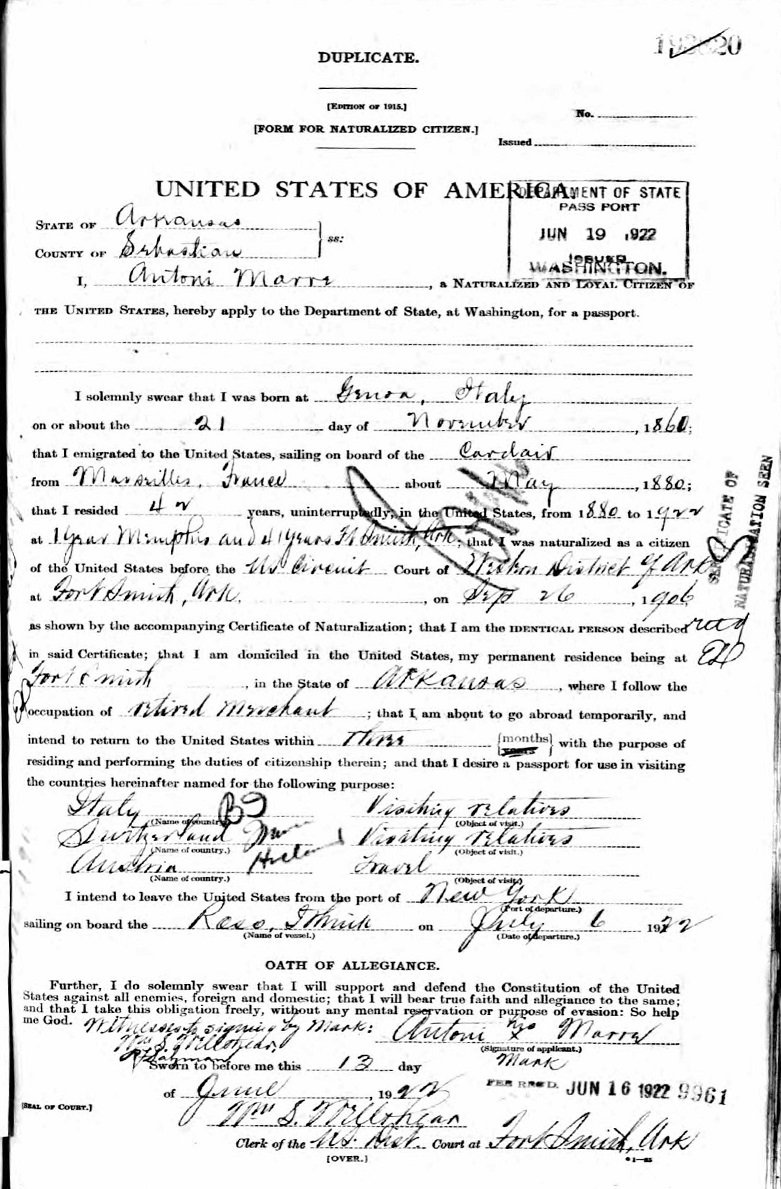 DUPLICATE.
[EDITION OF 1915.]
[FORM FOR NATURALIZED CITIZEN.]
No.
Issued
UNITED STATES OF AMERICA.
DEPARTMENT OF STATE
PASSPORT
JUN 19 1922
ISSUED
WASHINGTON.
STATE OF Arkansas
COUNTY OF Sebastian
ss:
I, Antoni Marre, a NATURALIZED AND LOYAL CITIZEN OF
THE UNITED STATES, hereby apply to the Department of State, at Washington, for a passport.
I solemnly swear that I was born at Genoa, Italy
on or about the 21 day of November, 1860;
that I emigrated to the United States, sailing on board of the
from Marseilles, France about May, 1880;
that I resided 42 years, uninterruptedly, in the United States, from 1880 to 1922
at 1 year Memphis and 41 years Ft. Smith, Ark, that I was naturalized as a citizen
of the United States before the US Circuit Court of Western District of Ark
at Fort Smith, Ark., on Sep 26, 1906
as shown by the accompanying Certificate of Naturalization; that I am the IDENTICAL PERSON described
in said Certificate; that I am domiciled in the United States, my permanent residence being at
Fort Smith, in the State of Arkansas, where I follow the
occupation of retired merchant; that I am about to go abroad temporarily, and
intend to return to the United States within three [months years] with the purpose of
residing and performing the duties of citizenship therein; and that I desire a passport for use in visiting
the countries hereinafter named for the following purpose:
Italy Visiting relatives
(Name of country.) (Object of visit.)
Switzerland Visiting relatives
(Name of country.) (Object of visit.)
Austria Travel
(Name of country.) (Object of visit.)
I intend to leave the United States from the port of New York
(Port of departure.)
sailing on board the on July 6 1922
(Name of vessel.) (Date of departure.)
CERTIFICATE OF
NATURALIZATION SEEN
OATH OF ALLEGIANCE.
Further, I do solemnly swear that I will support and defend the Constitution of the United
States against all enemies, foreign and domestic; that I will bear true faith and allegiance to the same;
and that I take this obligation freely, without any mental reservation or purpose of evasion: So help
me God. Witnesses to signing by Mark: Antoni his x Marre
(Signature of applicant.)
Mark
Wm S. Wellshear,
Sworn to before me this 13 day
of June, 1922
FEE REC'D. JUN 16 1922 9961
[SEAL OF COURT.]
Wm S. Wellshear
Clerk of the US Dist. Court at Fort Smith, Ark
[OVER.]